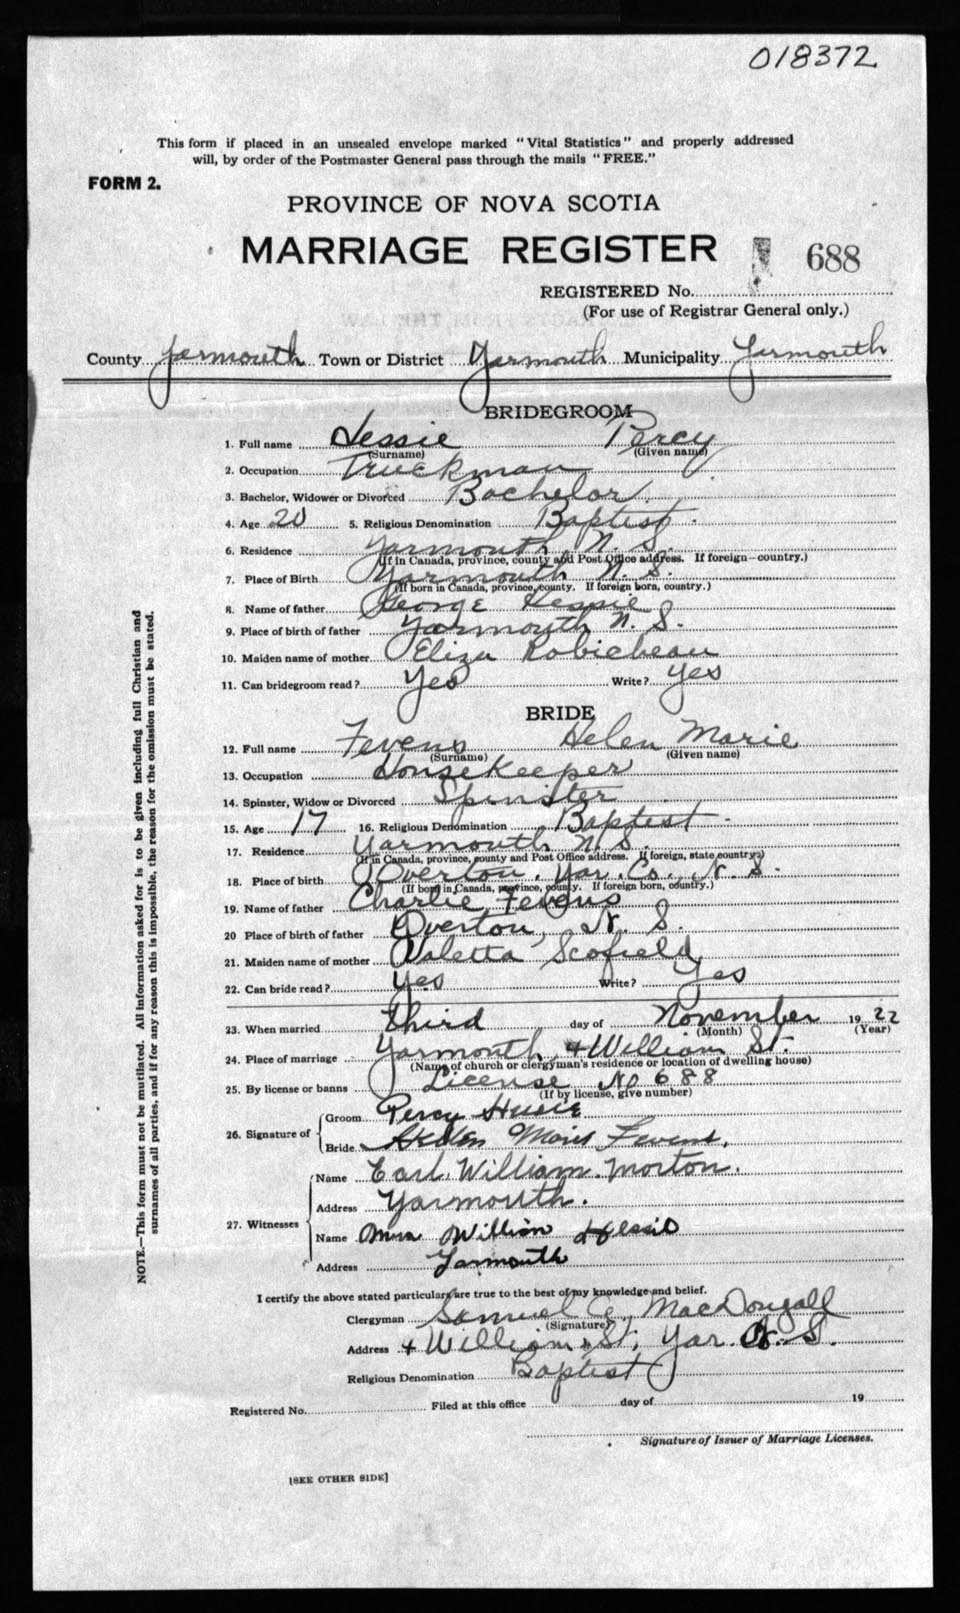 018372
This form if placed in an unsealed envelope marked "Vital Statistics" and properly addressed
will, by order of the Postmaster General pass through the mails "FREE."
FORM 2.
PROVINCE OF NOVA SCOTIA
MARRIAGE REGISTER 688
REGISTERED No.
(For use of Registrar General only.)
County Yarmouth Town or District Yarmouth Municipality Yarmouth
BRIDEGROOM
1. Full name Percy
(Surname) (Given name)
2. Occupation Truckman
3. Bachelor, Widower or Divorced Bachelor.
4. Age 20 5. Religious Denomination Baptist.
6. Residence Yarmouth N. S.
(If in Canada, province, county and Post Office address. If foreign—country.)
7. Place of Birth Yarmouth N. S.
(If born in Canada, province, county. If foreign born, country.)
8. Name of father George
9. Place of birth of father Yarmouth N. S.
10. Maiden name of mother Eliza Robicheau
11. Can bridegroom read? Yes Write? Yes
BRIDE
12. Full name Fevens Helen Marie
(Surname) (Given name)
13. Occupation Housekeeper
14. Spinster, Widow or Divorced Spinster
15. Age 17 16. Religious Denomination Baptist.
17. Residence Yarmouth N. S.
(If in Canada, province, county and Post Office address. If foreign, state country.)
18. Place of birth Overton, Yar. Co., N. S.
(If born in Canada, province, county. If foreign born, country.)
19. Name of father Charlie Fevens
20 Place of birth of father Overton, N. S.
21. Maiden name of mother Valetta Scofield
22. Can bride read? Yes Write? Yes
23. When married third day of November 1922
(Month) (Year)
24. Place of marriage Yarmouth, 4 William St.
(Name of church or clergyman's residence or location of dwelling house)
25. By license or banns License No 688
(If by license, give number)
26. Signature of
Groom Percy
Bride Helen Marie Fevens.
27. Witnesses
Name Earl William Morton.
Address Yarmouth.
Name Mrs William
Address Yarmouth
I certify the above stated particulars are true to the best of my knowledge and belief.
Clergyman Samuel MacDougall
(Signature)
Address 4 William St, Yar. N. S.
Religious Denomination Baptist
Registered No. Filed at this office day of 19
Signature of Issuer of Marriage Licenses.
[SEE OTHER SIDE]
NOTE.—This form must not be mutilated. All information asked for is to be given including full Christian and
surnames of all parties, and if for any reason this is impossible, the reason for the omission must be stated.